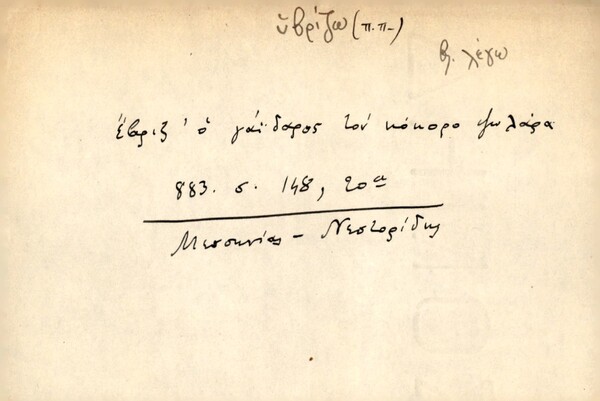 ὑβρίζω (π.π.)
βλ. λέγω
ἔβριζ' ὁ γάϊδαρος τὸν κόκορο ψωλάρα
883. σ. 148, 20α
Μεσσηνίας - Νεστορίδης